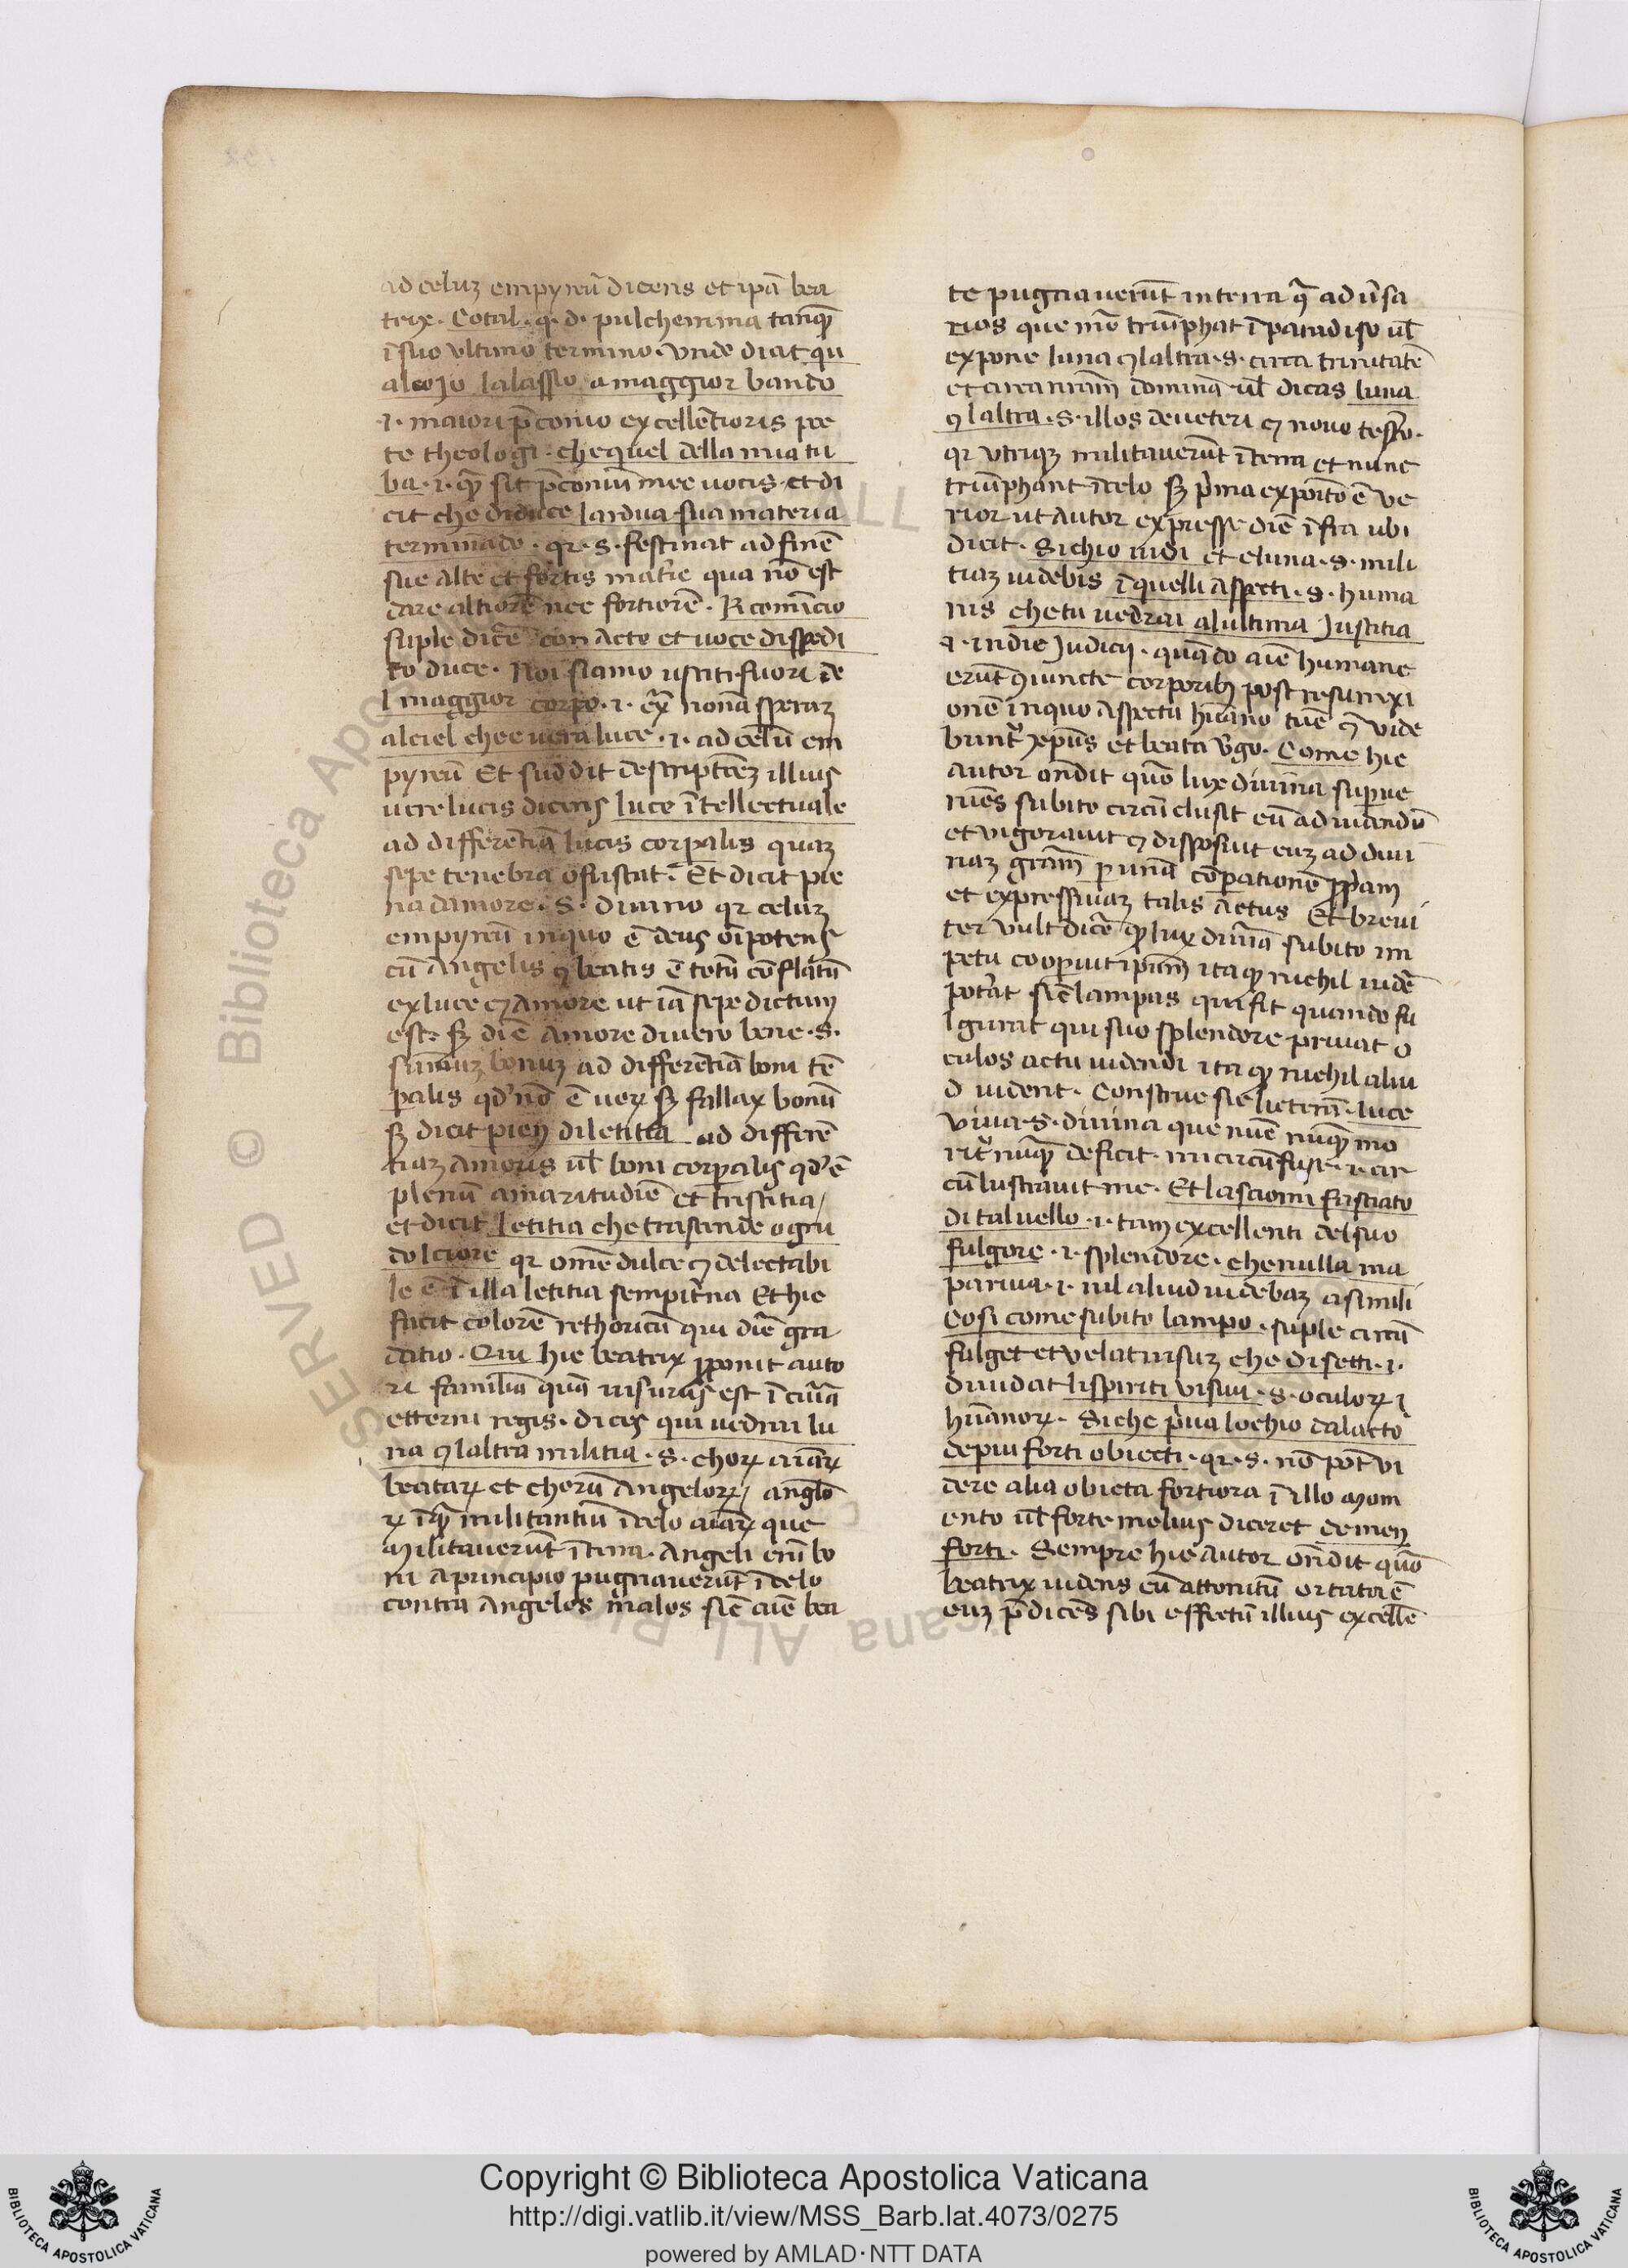 ad celuꝫ empyreū dicens et ipā bea
trix. Cotal .q.d. pulcherrima tanqꝫ
ī suo ultimo termino. unde dicit qu
al co io lalasso a maggior bando
.i. maiori p̄conio excellētioris poe
te theologi. che quel della mia tu
ba .i. qꝫ sit p̄coniū mee uocis. et di
cit che diduce lardua sua materia
terminādo .qr .s. festinat ad finē
sue alte et fortis mat̄ie qua nō est
dare altiorē nec fortiorē. Ricomīcio
suple dicē con acto et uoce di spedi
to duce. Noi siamo usciti fuori de
l maggior corpo .i. ex̄ nonā speraꝫ
al ciel che e uera luce .i. ad celū em
pyreū Et subdit descriptōeꝫ illius
uere lucis dicens luce ītellectuale
ad differentiā lucis corpalis quaꝫ
sepe tenebra ofuscat. Et dicit pie
na damore .s. diuino qr celuꝫ
empyreū in quo ē deus oīpotens
cū angelis ⁊ beatis ē totū cōflatū
ex luce ⁊ amore ut iā sepe dictum
est. sꝫ diē amore di uero bene .s.
sūmuꝫ bonuꝫ ad differētiā boni tē
palis qd' nō ē ueꝝ sꝫ fallax bonū
sꝫ dicit pien di letitia ad differē
tiaꝫ amoris ul' boni corpalis qd' ē
plenū amaritudiē et tristitia/
et dicit letitia che trascende ogni
dolciore qr omē dulce ⁊ delectabi
le ē ī illa letitia sempit̄na Et hic
facit colorē rethoricū qui dīe gra
datio. Qui hic beatrix ꝓponit auto
ri familiā quā uisurus est ī ciuitā
etterni regis. dicēs qui uedrai lu
na ⁊ laltra militia .s. choꝝ aīaꝝ
beataꝝ et chorū angeloꝝ/ anglo
ꝝ īqꝫ militantiū ī celo aīaꝝ que
militauerūt ī terra. Angeli enī bo
ni a principio pugnauerūt ī celo
contra angelos malos sic̄ aīe bea
te pugnauerūt in terra 9̄ aduersa
rios que mō triūphāt ī paradiso ul'
expone luna ⁊ laltra .s. circa trinitatē
et circa nr̄am dominā ul' dicas luna
⁊ laltra .s. illos de ueteri ⁊ nouo testo.
qr utriqꝫ militauerūt ī terra et nunc
triūphant ī celo sꝫ p̄ma expositō ē ve
rior ut autor expresse diē īfra ubi
dicit. Sichio uidi et e luna .s. mili
tiaꝫ uidebis ī quelli aspecti .s. huma
nis che tu uedrai alultima Justitia
.i. in die Judicij. quādo aīe humane
erūt 9iuncte corporibꝫ post resurrexi
onē in quo aspectu hūano tūc ⁊ vide
bunt̄ xp̄us et beata ūgo. Come hic
autor ondit quō lux diuina superue
niēs subito circūclusit eū ad uidendū
et vigorauit ⁊ disposuit euꝫ ad diui
naꝫ grām p unā compationē ꝓpiam
et expressiuaꝫ talis actus Et breui
ter vult dicē qꝫ lux diuīa subito im
petu cooperuit ipsum ita qꝫ nichil uidē
pot̄at sic̄ lampas qui fit quando fu
lgurat qui suo splendore priuat o
culos actu uidendi ita qꝫ nichil aliu
d uident. Construe sic literā. luce
viua .s. diuina que nūc nūqꝫ mo
rit̄ nūqꝫ deficit. mi circūfuse .i. cir
cūlustrauit me. Et lasciomi fasciato
di tal uello .i. tam excellenti del suo
fulgore .i. splendore. che nulla ma
pariua .i. nil aliud uidebaꝫ a simili
Cosi come subito lampo. suple circū
fulget et velat uisuꝫ che disetti .i.
diuidat li spiriti visiui .s. oculoꝝ
hūanoꝝ. Si che p̄ua lochio dalacto
de piu forti obiecti .qr .s. nō pōt vi
dere alia obiecta fortiora ī illo mom
ento ul' forte melius diceret de men
forti. Sempre hic autor ondit quō
beatrix uidens eū attonitū ortata ē
euꝫ p̄dicēs sibi effectū illius excellē
Copyright © Biblioteca Apostolica Vaticana
http://digi.vatlib.it/view/MSS_Barb.lat.4073/0275
powered by AMLAD·NTT DATA